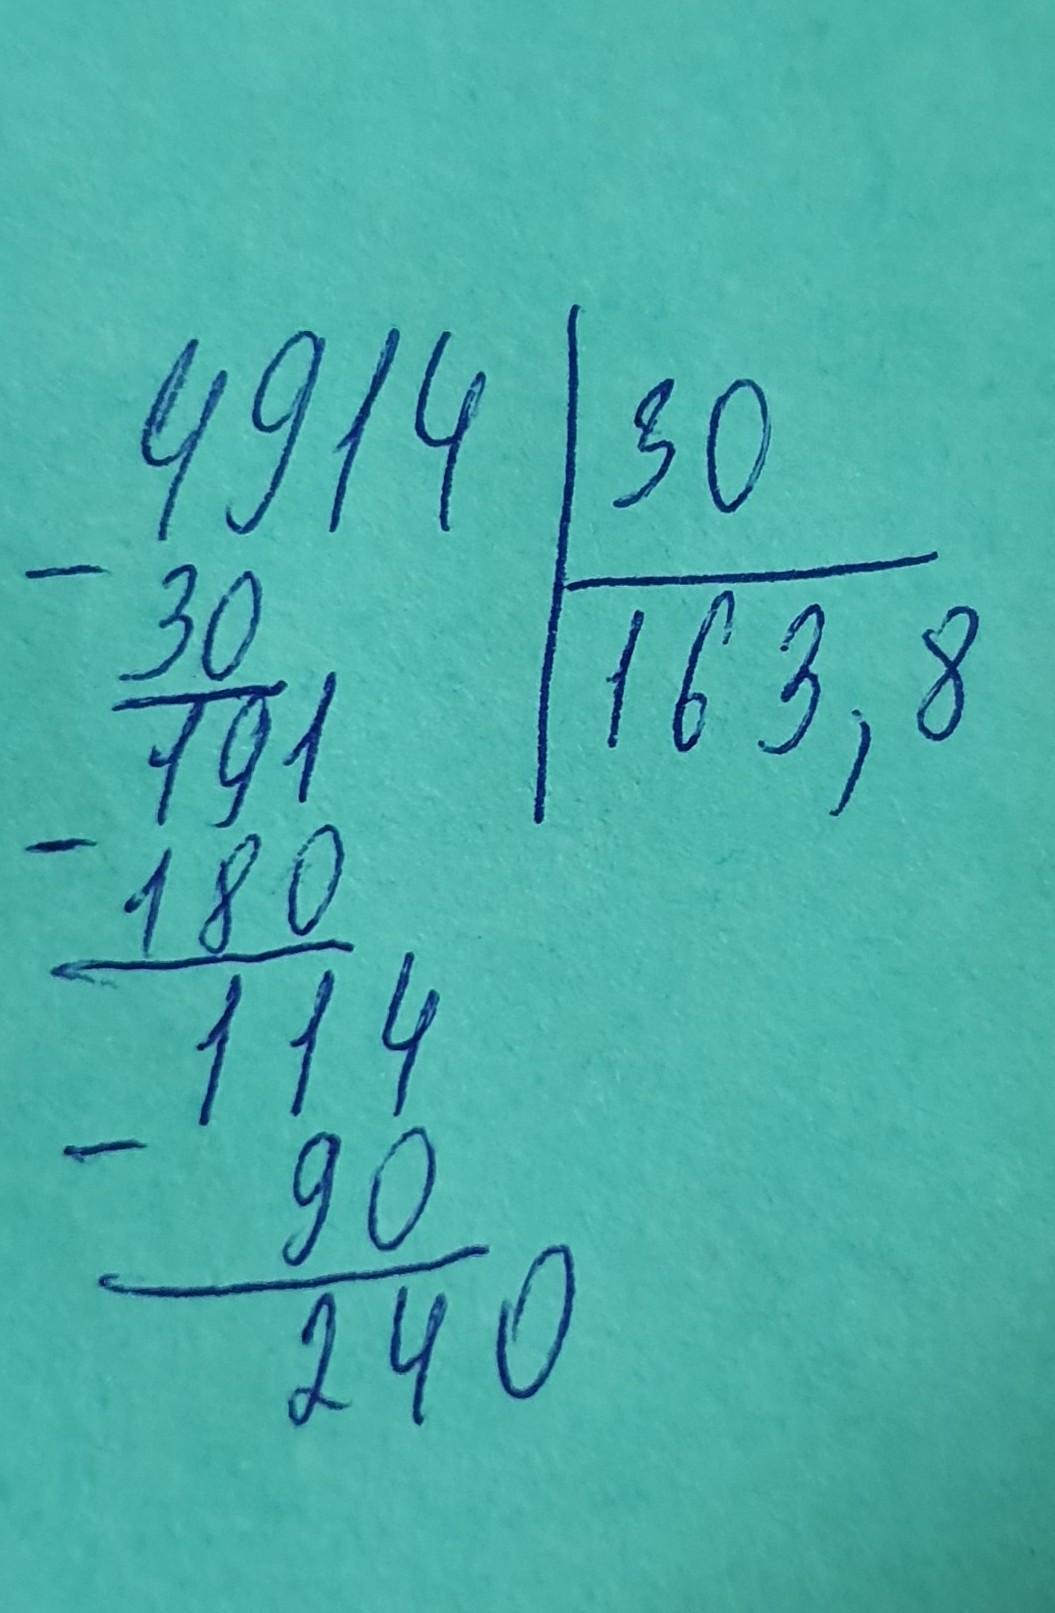 4914 30
- 30 163,8
191
- 180
114
- 90
240